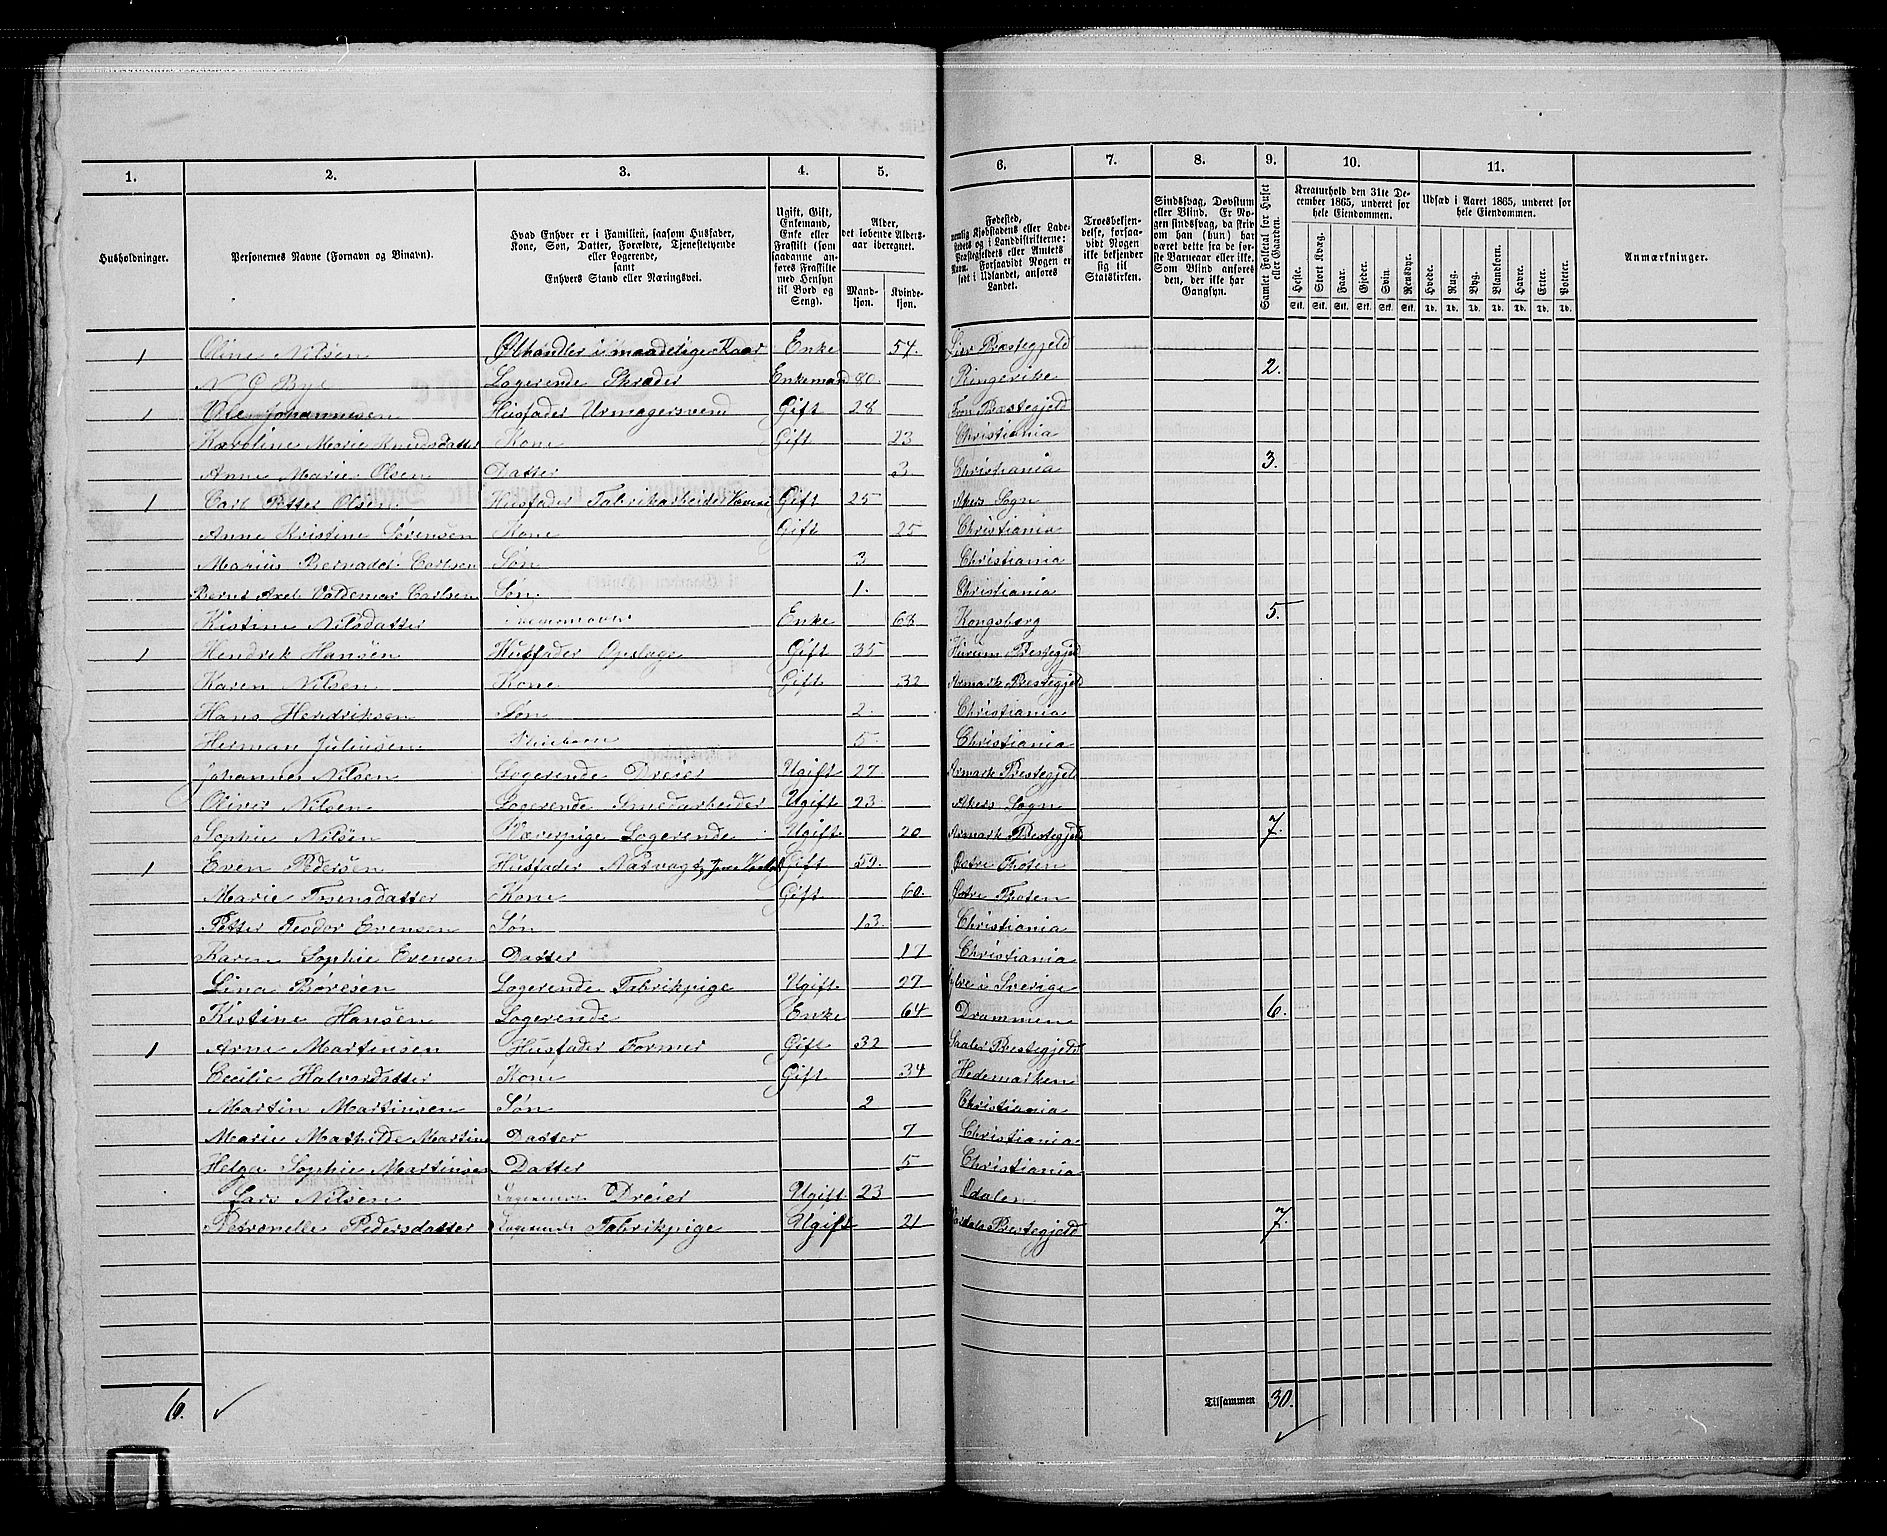 1. 2. 3. 4. 5. 6. 7. 8. 9. 10. 11.
Husholdninger.
Personernes Navne (Fornavn og Binavn).
Hvad Enhver er i Familien, saasom Husfader, Kone, Søn, Datter, Forældre, Tjenestetyende eller Logerende, samt Enhvers Stand eller Næringsvei.
Ugift, Gift, Enkemand, Enke eller Fraskilt (som saadanne anføres Fraskilte med Hensyn til Bord og Seng).
Alder, det løbende Aldersaar iberegnet.
Mandkjøn. Kvindekjøn.
Fødested, nemlig Kjøbstadens eller Ladestedets og i Landdistrikterne: Præstegjeldets eller Amtets Navn. Forsaavidt Nogen er født i Udlandet, anføres Landet.
Troesbekjendelse, forsaavidt Nogen ikke bekjender sig til Statskirken.
Sindssvag, Døvstum eller Blind. Er Nogen sindssvag, da skrives om han (hun) har været dette fra de første Barneaar eller ikke. Som Blind anføres den, der ikke har Gangsyn.
Samlet Folketal for Huset eller Gaarden.
Kreaturhold den 31te December 1865, underet for hele Eiendommen.
Heste. Stort Kvæg. Faar. Gjeder. Svin. Rensdyr.
Stk. Stk. Stk. Stk. Stk. Stk.
Udsæd i Aaret 1865, underet for hele Eiendommen.
Hvede. Rug. Byg. Blandkorn. Havre. Erter. Poteter.
Td. Td. Td. Td. Td. Td. Td.
Anmærkninger.
1 Oline Nilsen Ølhandler i maadelige Kaar Enke 54. Lier Præstegjeld
N O Bye Logerende Skræder Enkemand 80. Ringerike 2.
1 Ole Johannesen Husfader Urmagersvend Gift 28 Præstegjeld
Karoline Marie Knudsdatter Kone Gift 23 Christiania
Anne Marie Olsen Datter 3 Christiania 3.
1 Carl Petter Olsen Husfader Fabrikarbeider Gift 25 Akers Sogn
Anne Kristine Sørensen Kone Gift 25 Christiania
Marius Carlsen Søn 3 Christiania
Bernt Axel Valdemar Carlsen Søn 1. Christiania
Kistine Nilsdatter Enke 63 Kongsberg 5.
1 Hendrik Hansen Husfader Gift 35 Hurum Prestegjeld
Karen Nilsen Kone Gift 32 Aremark Prestegjeld
Hans Hendriksen Søn 2. Christiania
Herman Juliusen Pleiebarn 5 Christiania
Johannes Nilsen Logerende Dreier Ugift 27 Aremark Prestegjeld
Oliver Nilsen Logerende Smedarbeider Ugift 23. Akers Sogn
Sophie Nilsen Væverpige Logerende Ugift 20 Aremark Prestegjeld 7.
1 Even Pedersen Husfader Gift Østre Thoten
Marie Kone Gift 60. Østre Thoten
Petter Teodor Evensen Søn 13. Christiania
Karen Sophie Evensen Datter 17 Christiania
Lina Børesen Logerende Fabrikpige Ugift 27 i Sverige
Kistine Hansen Logerende Enke 64 Drammen 6.
1 Arne Martinsen Husfader Former Gift 32 Prestegjeld
Cecilie Halvorsdatter Kone Gift 34 Hedemarken
Martin Martinsen Søn 2 Christiania
Marie Mathilde Martins Datter 7 Christiania
Helga Sophie Martinsen Datter 5 Christiania
Lars Nilsen Logerende Dreier Ugift 23 Odalen
Petronelle Pedersdatter Logerende Fabrikpige Ugift 21 Prestegjeld 7.
6. Tilsammen 30.